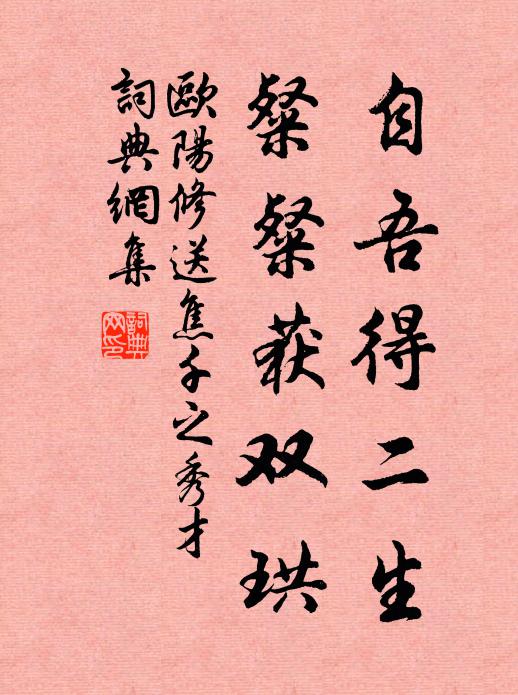 自吾得二生
粲粲获双珙
歐陽修送焦千之秀才
詞典網集
詞典
网印